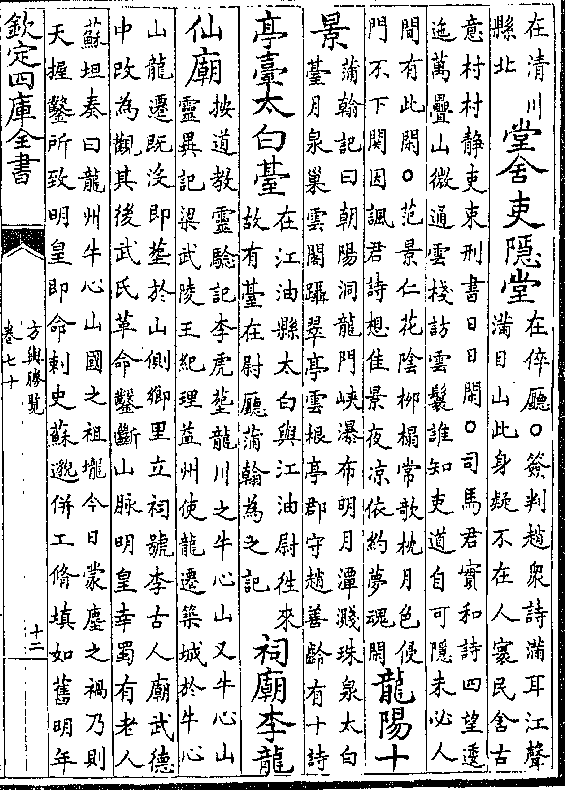 在清川
縣北
堂舍吏隱堂
在倅廳○簽判趙衆詩滿耳江聲
滿目山此身疑不在人寰民含古
意村村靜吏束刑書日日閑○司馬君實和詩四望逶
迤萬疊山微通雲棧訪雲鬟誰知吏道自可隱未必人
間有此閑○范景仁花陰柳榻常歌枕月色侵
門不下關因諷君詩想佳景夜凉依約夢魂閒
龍陽十
景
蒲翰記曰朝陽洞龍門峽瀑布明月潭濺珠泉太白
臺月泉巢雲閣躡翠亭雲根亭郡守趙善齡有十詩
亭臺太白臺
在江油縣太白與江油尉徃來
故有臺在尉廳蒲翰為之記
祠廟李龍
仙廟
按道教靈驗記李虎塟龍川之牛心山又牛心山
靈異記梁武陵王紀理益州使龍遷築城於牛心
山龍遷既沒即塟於山側鄉里立祠號李古人廟武德
中改為觀其後武氏革命鑿斷山脉明皇幸蜀有老人
蘇坦奏曰龍州牛心山國之祖壠今日蒙塵之禍乃則
天掘鑿所致明皇即命刺史蘇邈併工脩填如舊明年
欽定四庫全書
方輿勝覽
卷七十
十二